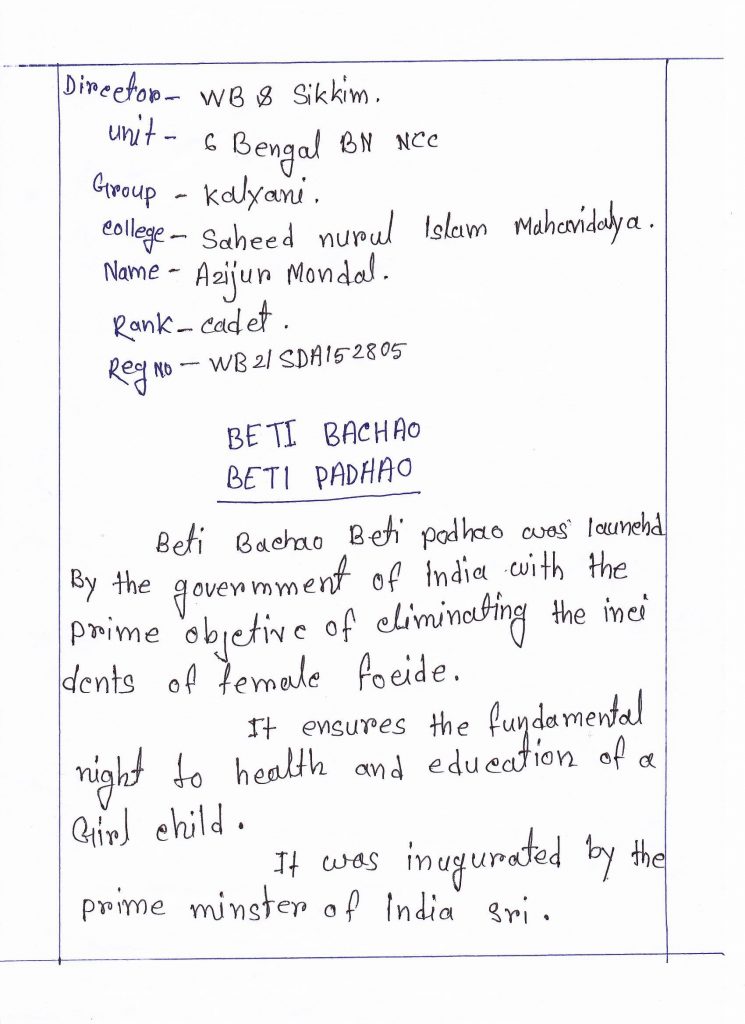 Director - WB & Sikkim.
unit - 6 Bengal BN NCC
Group - Kalyani.
college - Saheed nurul Islam Mahavidalya.
Name - Azijur Mondal.
Rank - cadet.
Reg No - WB21SDA152805
BETI BACHAO
BETI PADHAO
Beti Bachao Beti padhao was launchd
By the government of India with the
prime objetive of eliminating the inci
dents of female foeide.
It ensures the fundamental
right to health and education of a
Girl child.
It was inugurated by the
prime minster of India sri.